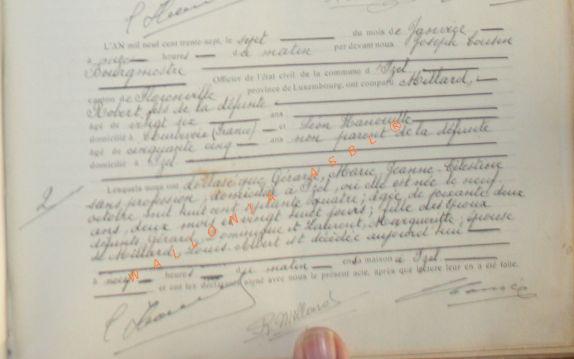 L'AN mil neuf cent trente-sept, le sept du mois de Janvier
à neuf heures du matin par devant nous Joseph
Bourgmestre Officier de l'état civil de la commune d' Izel
canton de Florenville province de Luxembourg, ont comparu Millard,
Robert, fils de la défunte
âgé de vingt six ans
domicilié à Courbevoie (France) et Léon Hanouille
âgé de cinquante cinq ans non parent de la défunte
domicilié à Izel
2
Lesquels nous ont déclaré que Gérard, Marie, Jeanne, Célestine
sans profession, domiciliée à Izel, où elle est née le neuf
octobre mil huit cent septante quatre; âgée de soixante deux
ans, deux mois et vingt huit jours; fille des époux
défunts Gérard, Dominique et Laurent, Marguerite; épouse
de Millard, Louis Albert est décédée aujourd'hui
à heures du matin en sa maison à Izel.
et ont les déclarants signé avec nous le présent acte, après que lecture leur en a été faite.
R. Millard
WALLONIA ASBL ®